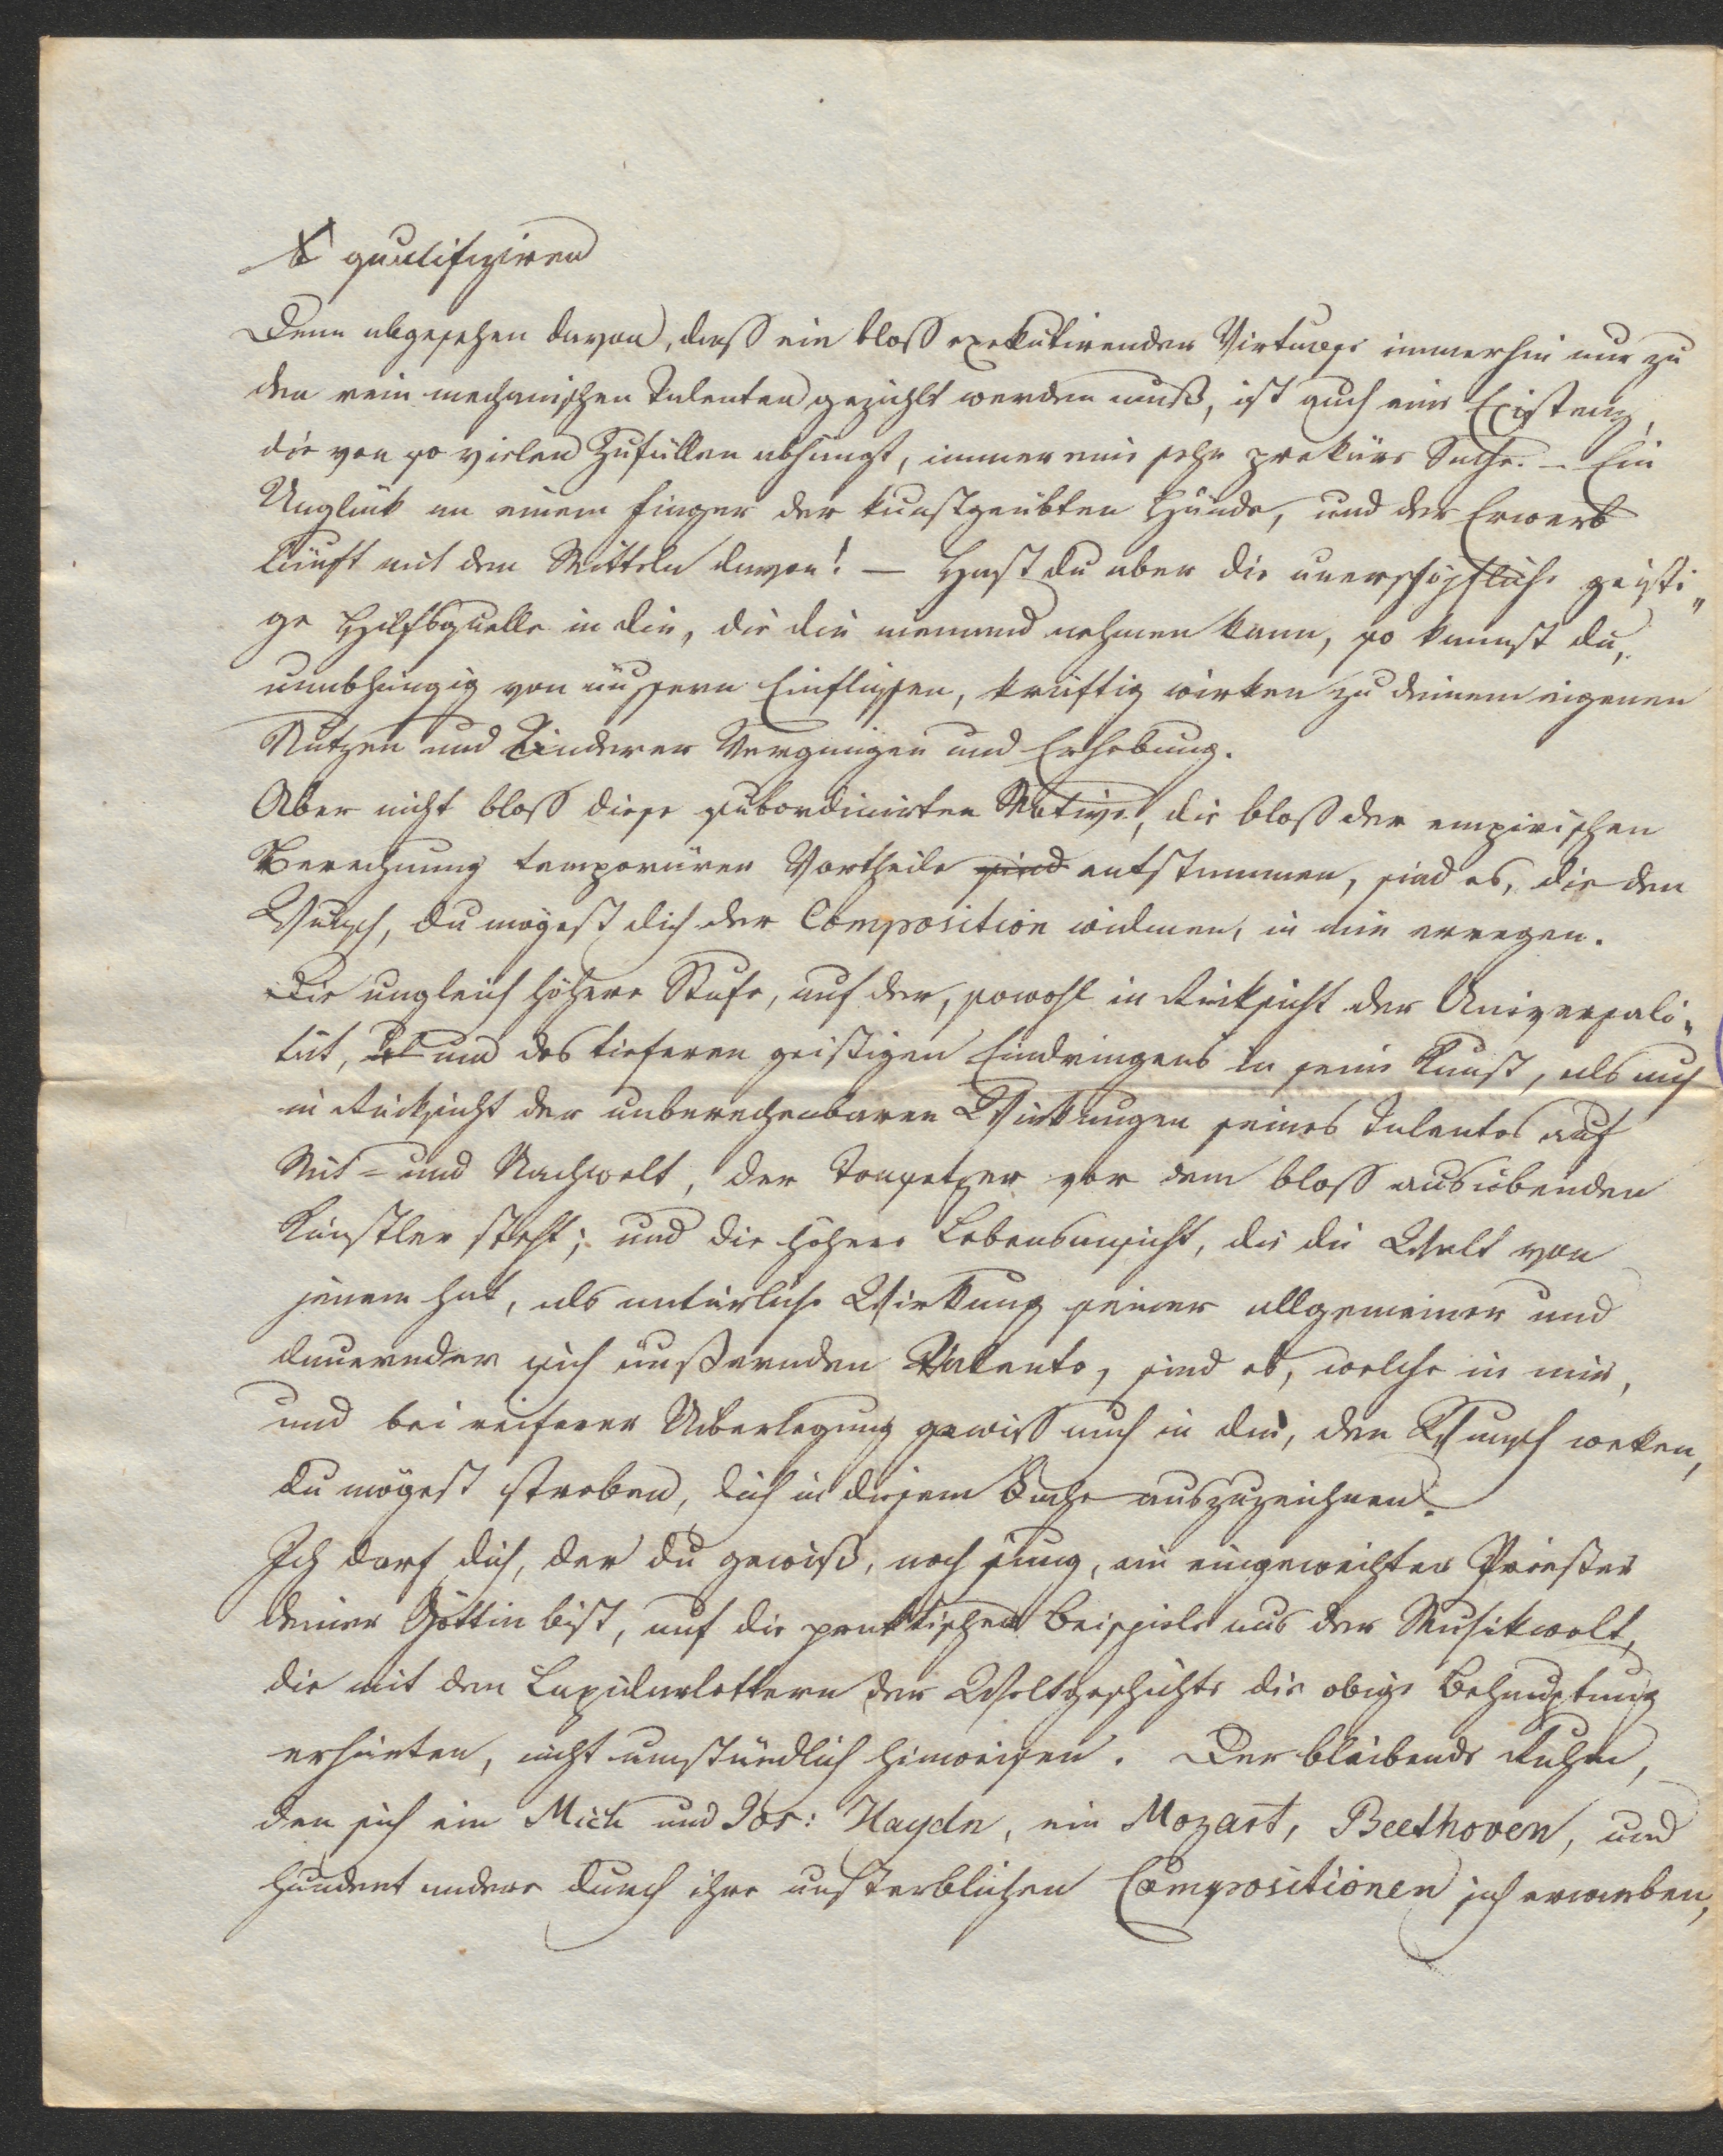 qualifiziren
Denn abgesehen davon, dass ein bloss exekutirender Virtuose immerhin nur zu
den rein mechanischen Talenten gezählt werden muß, ist auch eine Existenz,
die von so vielen Zufällen abhängt, immer eine sehr prekäre Sache. – Ein
Unglück an einem Finger der kunstgeübten Hände, und der Erwerb
läuft mit den Mitteln davon! – Hast du aber die unerschöpfliche geisti„
ge Hilfsquelle in dir, die dir niemand nehmen kann, so kannst du,
unabhängig von äussern Einflüssen, kräftig wirken zu deinem eigenen
Nutzen und Anderer Vergnügen und Erhebung.
Aber nicht bloss diese subordinirten Motive, die bloss der empirischen
Berechnung temporärer Vortheile sind entstammen, sind es, die den
Wunsch, du mögest dich der Composition widmen, in mir erregen.
Die ungleich höhere Stufe, auf der, sowohl in Rücksicht der Universali„
tät, und des tieferen geistigen Eindringens in seine Kunst, als auch
in Rücksicht der unberechenbaren Wirkungen seines Talentes auf
Mit- und Nachwelt, der Tonsetzer vor dem bloss ausübenden
Künstler steht; und die höhere Lebensansicht, die die Welt von
jenem hat, als natürliche Wirkung seiner allgemeiner und
dauernder sich äußernden Talente, sind es, welche in mir,
und bei reiferer Ueberlegung gewiss auch in dir, den Wunsch weken,
du mögest streben, dich in diesem Fache auszuzeichnen.
Ich darf dich, der du gewiß, noch jung, ein eingeweihter Priester
deiner Göttin bist, auf die praktischen Beispiele aus der Musikwelt,
die mit den Lapidarlettern der Weltgeschichte die obige Behauptung
erhärten, nicht umständlich hinweisen. Der bleibende Ruhm,
den sich ein Mich und Jos: Haydn, ein Mozart, Beethoven, und
hundert andere durch ihre unsterblichen Compositionen sich erwarben,